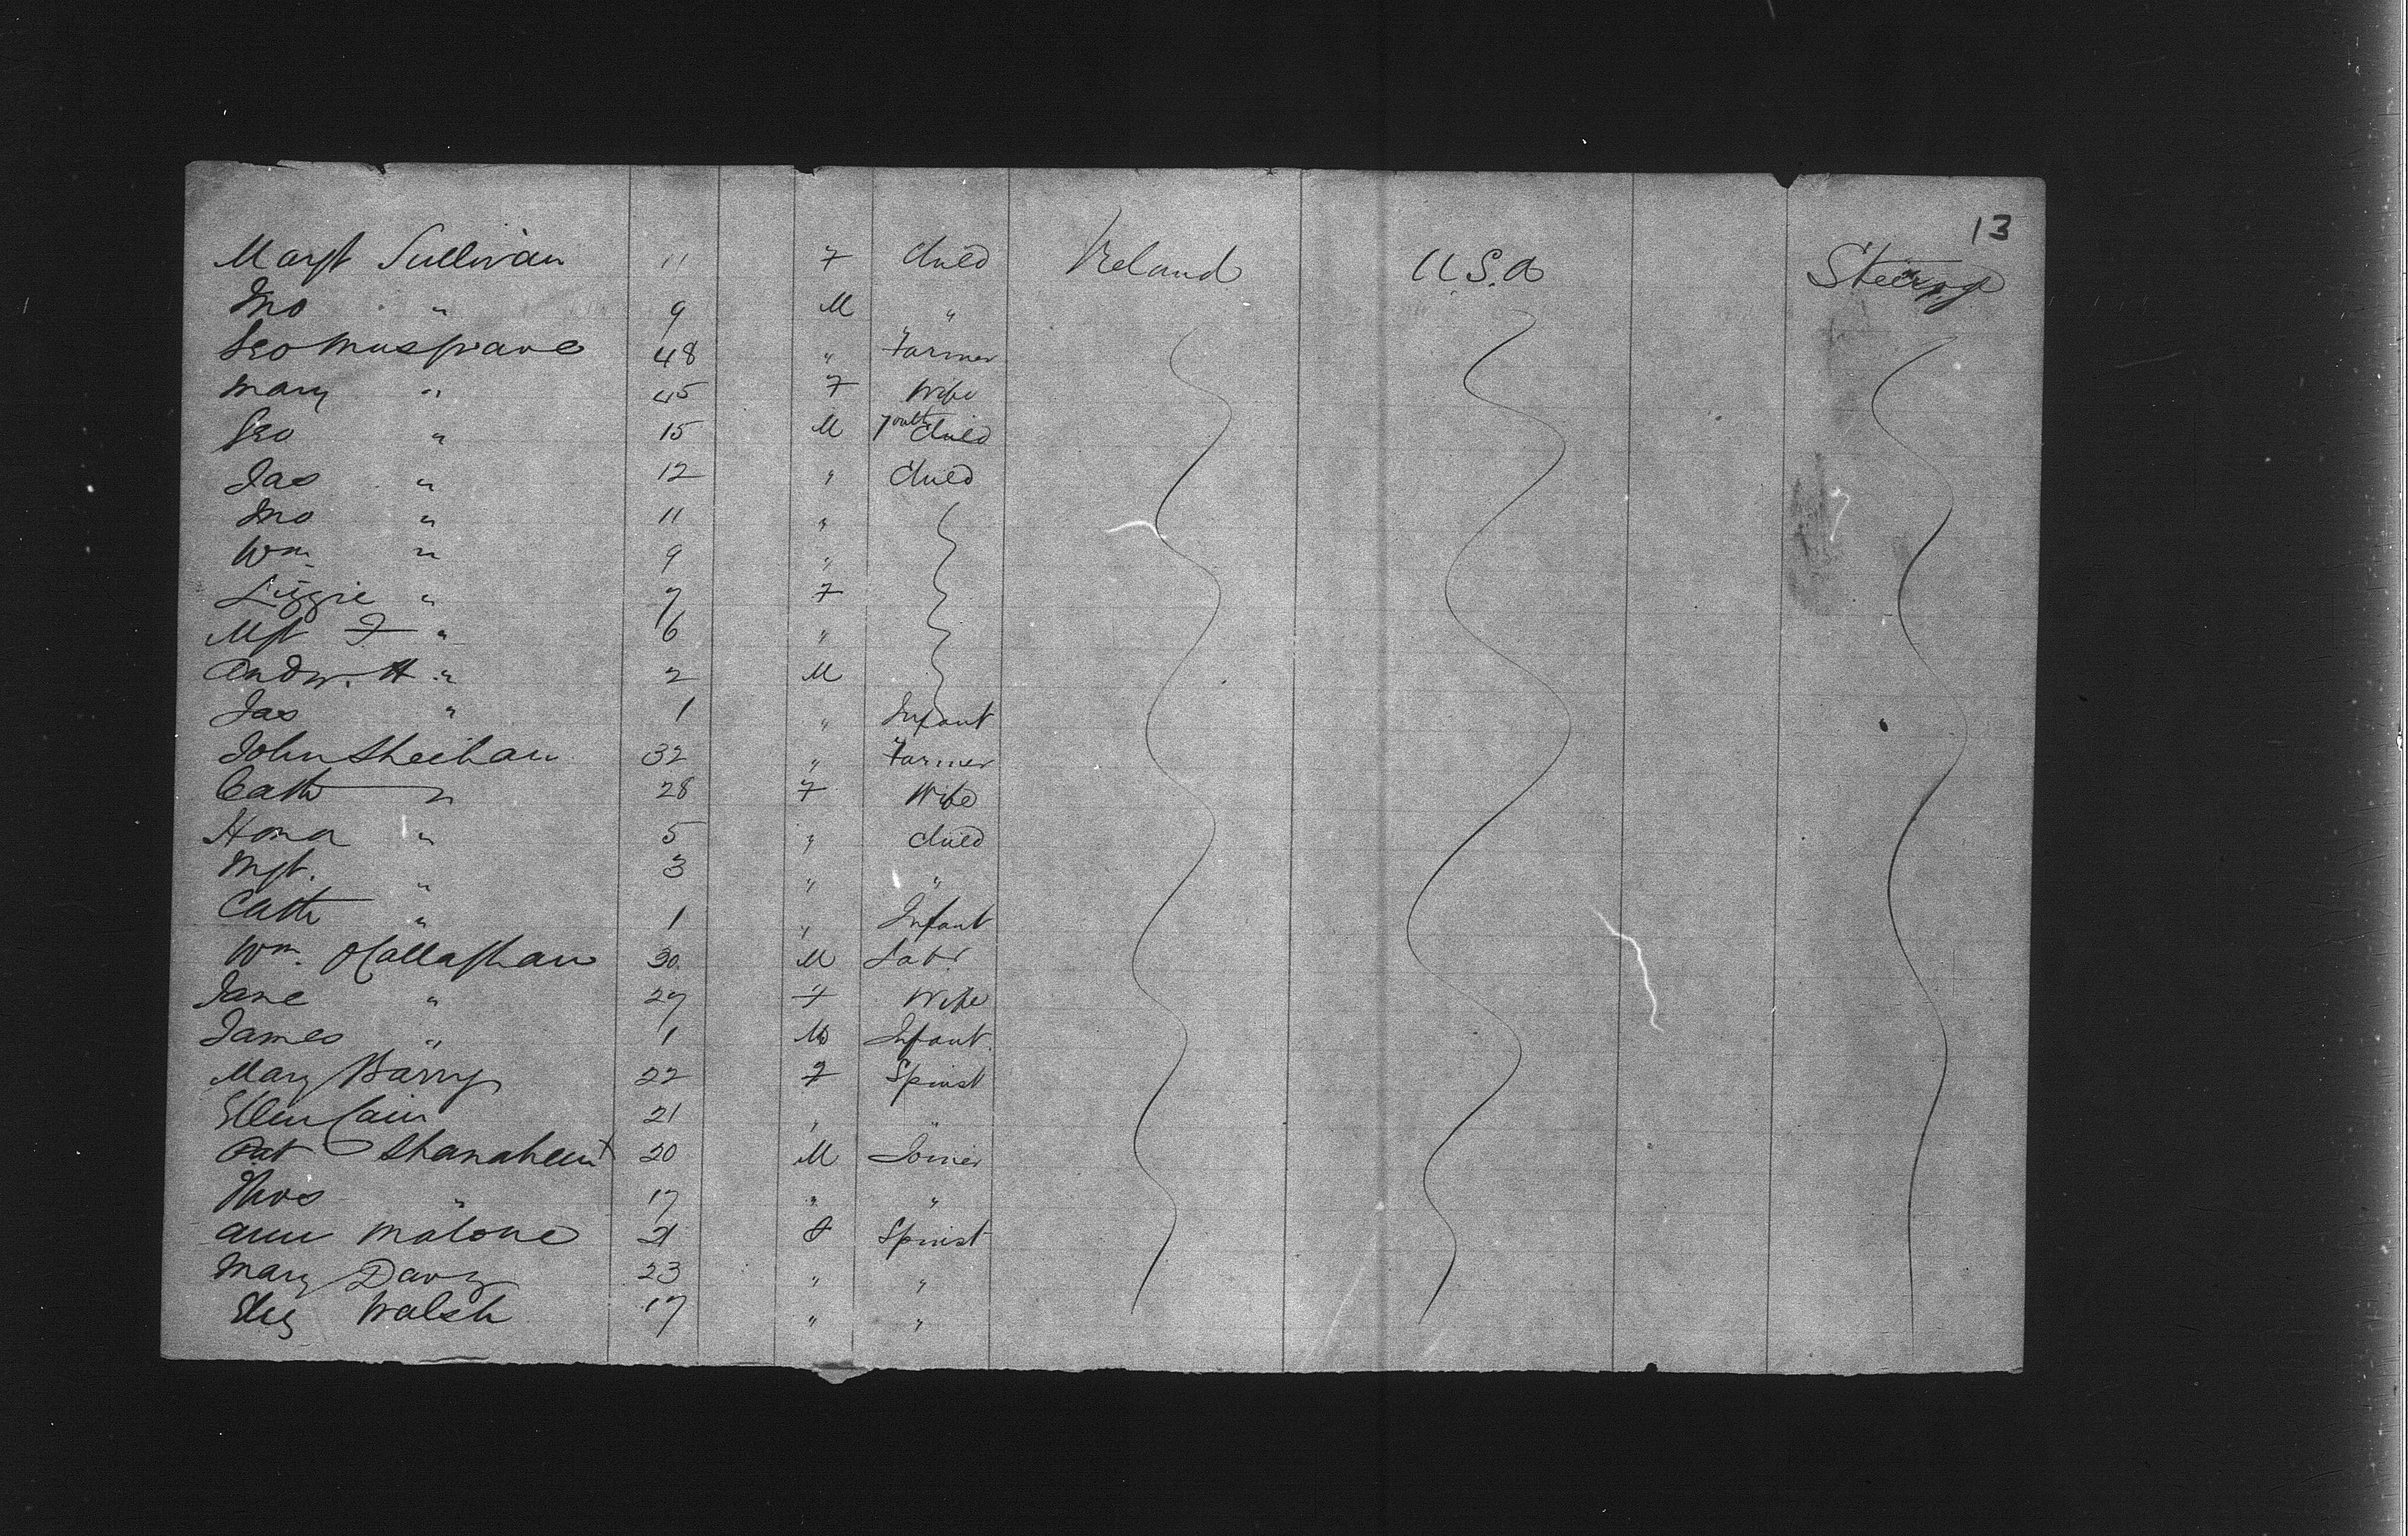 13
Margt Sullivan 11 F Child Ireland U.S.A Steerage
Jno " 9 M "
Geo Musgrave 48 " Farmer
Mary " 45 F Wife
Geo " 15 M Youth Child
Jas " 12 " Child
Jno " 11 "
Wm " 9 "
Lizzie " 7 F
Mgt F " 6 "
Andw. H " 2 M
Jas " 1 " Infant
John Sheehan 32 " Farmer
Cath " 28 F Wife
Hona " 5 " Child
Mgt. " 3 " "
Cath " 1 " Infant
Wm. OCallaghan 30 M Labr
Jane " 27 F Wife
James " 1 M Infant
Mary Barry 22 F Spinst
Ellen Cain 21 " "
Pat Shanahan 20 M Joiner
Thos " 17 " "
Ann Malone 21 F Spinst
Mary Davy 23 " "
Walsh 17 " "